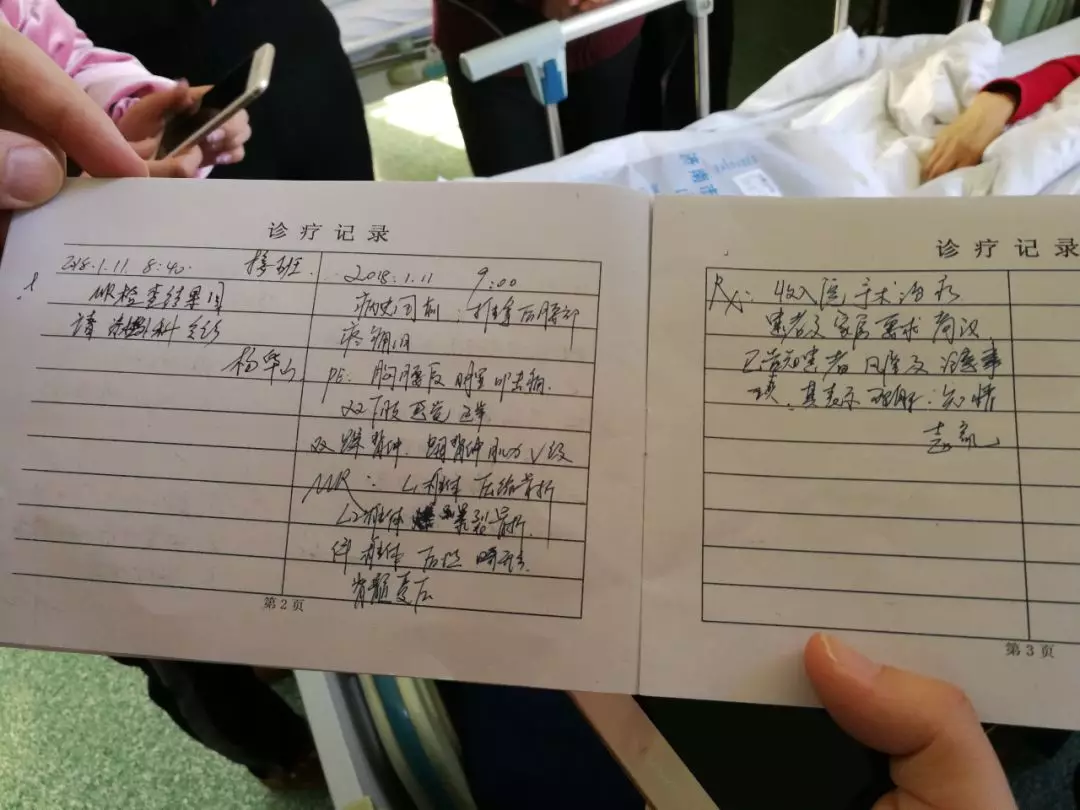 诊疗记录
2018.1.11 8:40. 接班.
MR检查结果回
请 外科会诊
杨华山
2018.1.11 9:00
病史同前: 后腰部
疼痛
PE: 胸腰段 明显叩击痛.
双下肢感觉正常
双踝背伸. 拇背伸肌力V级
MR: L1椎体压缩骨折
L2椎体 爆裂骨折.
伴椎体后 畸形.
脊髓受压
第2页
诊疗记录
Rx: 收入院手术治疗
患者及家属要求
已告知患者风险及注意事
项, 其表示理解. 知情
第3页
济南市